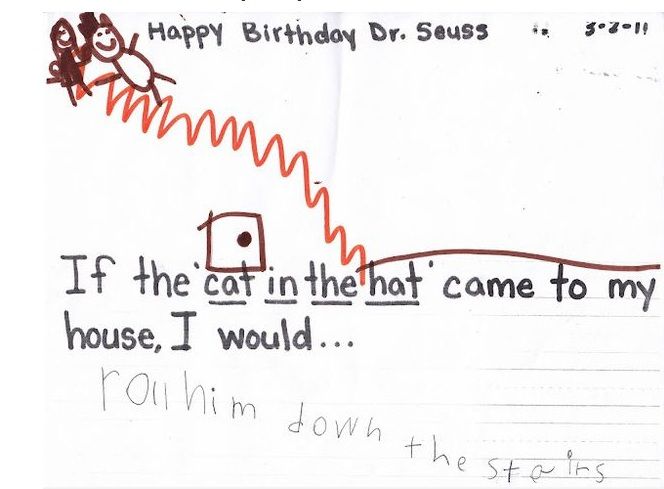 Happy Birthday Dr. Seuss 3-2-11
If the 'cat in the hat' came to my
house, I would...
roll him down the stairs